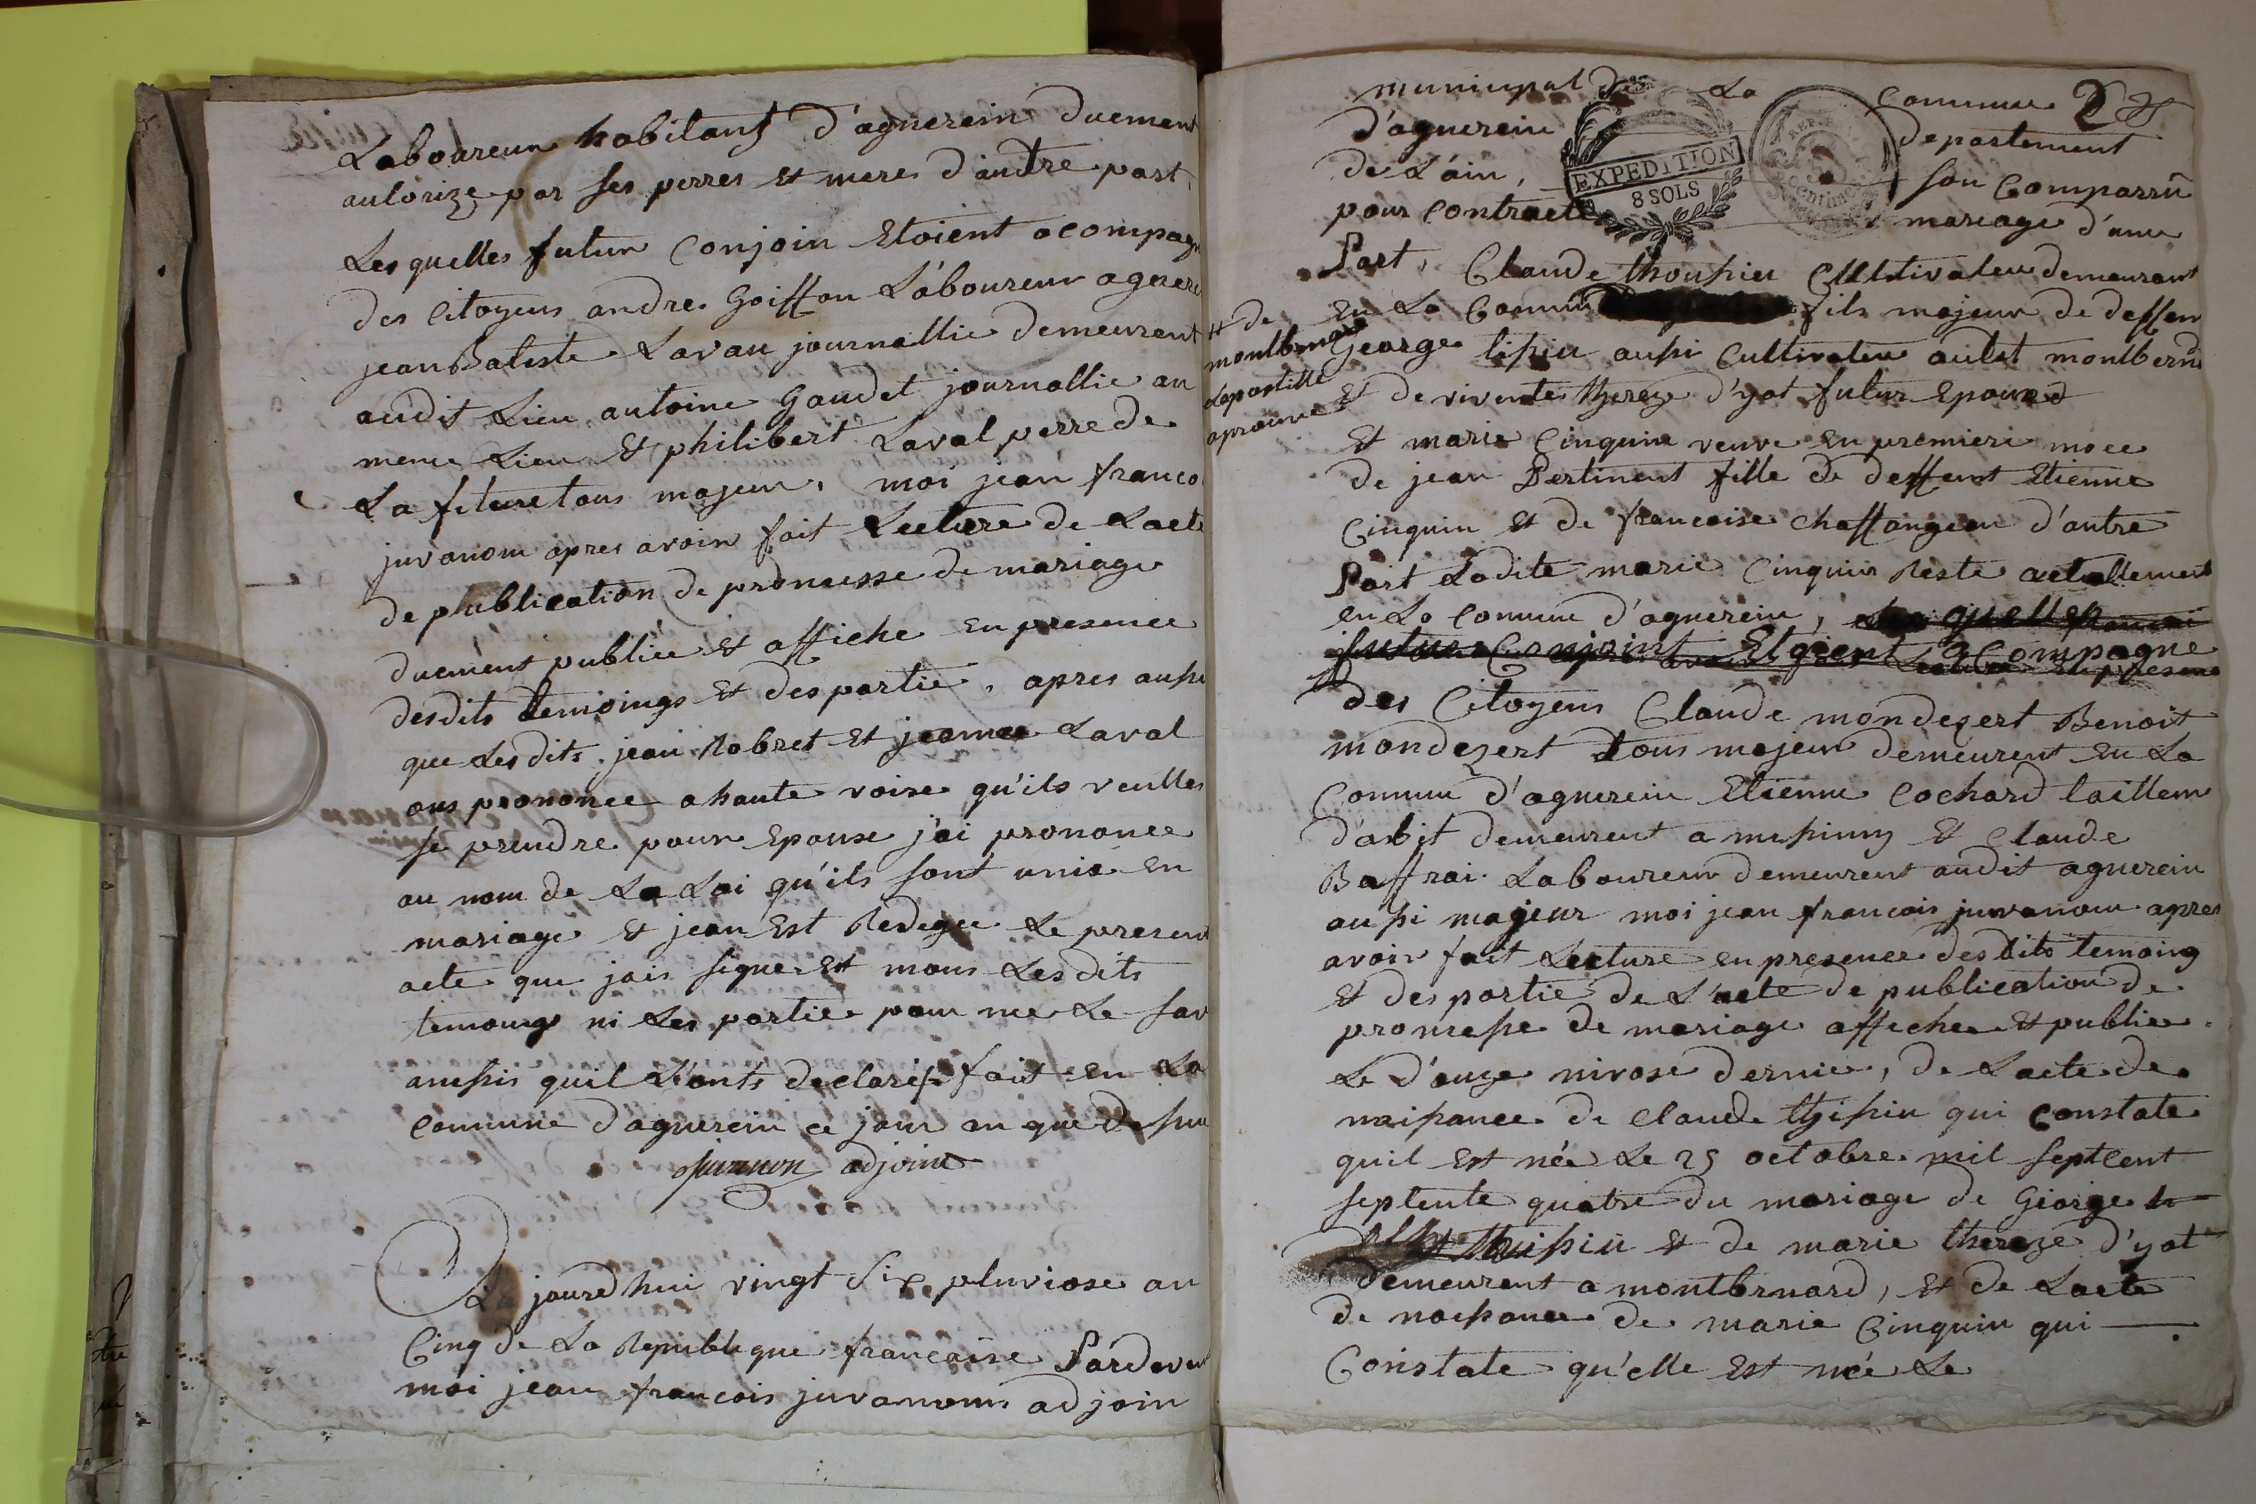 Laboureur habitant d'aguerein duement
autorize par ses perres et mere d'autre part,
Les quelles futur conjoin Etoient acompagn
des citoyens andre Goiffon Laboureur aguere
jean Batiste Lavau journallie demeurent
audit Lieu antoine Gaudet journallie au
meme Lieu Et philibert Laval perre de
La futuretous majeur, moi jean franco
juvanom apres avoir fait Lecture de Lacte
de publication de promesse de mariage
duement publiée et affiche en presence
desdits temoings et des partie, apres aussi
que Lesdits jean Robret et jeanne Laval
ons prononce a haute voise qu'ils veulles
se prendre pour Epouse j'ai prononce
au nom de La Loi qu'ils sont unis en
mariage et jean Est Redegee Le present
acte que jais signe Et mons Lesdits
temoings ni Les partie pour ne Le sav
ainssis quil L'onts declarés fait en La
commune d'aguerein ce jour an que dessu
juvanon adjoint
jourdhui vingt six pluviose an
Cinq de La Republique francaise Pardeven
moi jean francois juvanom adjoin
municipal de La commune
d'aguerein departement
de L'ain, son Comparru
EXPEDITION
8 SOLS
pour contracte mareage d'une
Part, Claude thoussieu Cultivateur demeurant
en La Commu fils majeur de deffen
et de
montbernard
Lapostille
aprouve
George tissieu aussi Cultivateur audit montbernd
Et de vivente thereze d'yot futur Epouzd
Et marie Cinquin veuve en premiere noce
de jean Pertinent fille de deffent Etienne
Cinquin et de francoise chaffangeon d'autre
Part Ladite marie Cinquin Reste actuellement
en La Commune d'aguerein, Les quelles
futur Conjoint Etoient acompagne
des Citoyens Claude mondezert Benoit
mondezert tous majeur demeurent en La
Commune d'aguerein Etienne Cochard tailleur
d'abit demeurent a messimy et Claude
Baffrai Laboureur demeurent audit aguerein
aussi majeur moi jean francois juvanom apres
avoir fait Lecture en presence desdits temoing
Et des partie de L'acte de publication de
promesse de mariage affichee et publie
Le d'ouze nivose dernier, de Lacte de
naissance de Claude thissieu qui constate
quil Est née Le 25 octobre mil septcent
septente quatre du mariage de George
thissieu et de marie thereze d'yot
demeurent a montbrnard, et de Lacte
de naissance de marie Cinquin qui
Constate qu'elle Est née Le